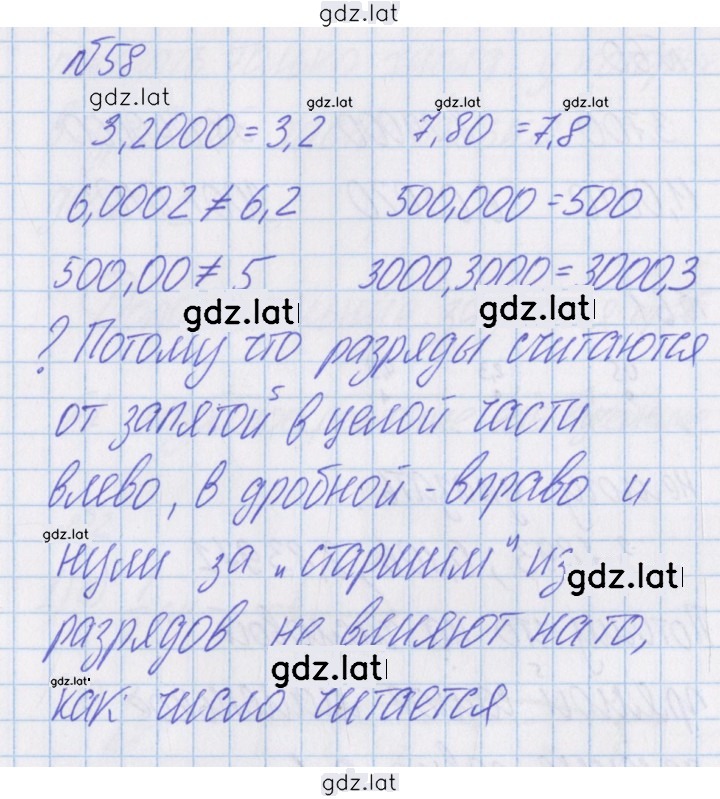 gdz.lat
№58
gdz.lat gdz.lat gdz.lat gdz.lat
3,2000 = 3,2 7,80 = 7,8
6,0002 ≠ 6,2 500,000 = 500
500,00 ≠ 5 3000,3000 = 3000,3
gdz.lat gdz.lat
? Потому что разряды считаются
от запятой в целой части
влево, в дробной - вправо и
gdz.lat
нули за „старшим" из
gdz.lat
разрядов не влияют на то,
gdz.lat gdz.lat
как число читается
gdz.lat